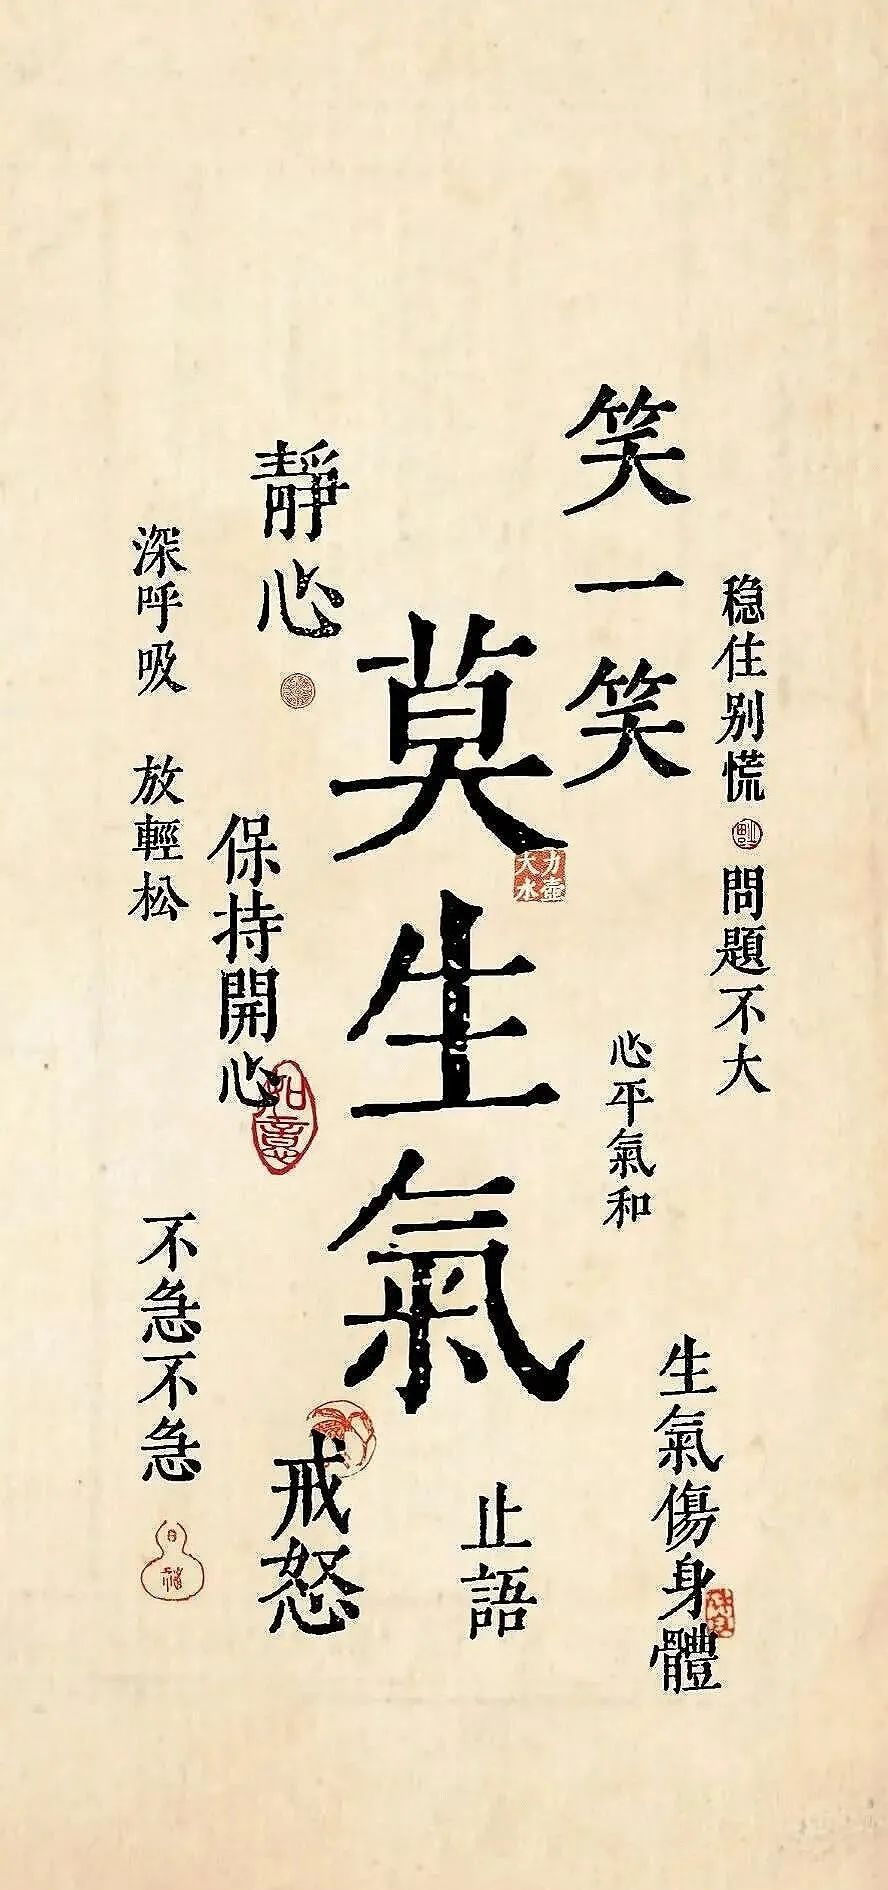 笑一笑
稳住别慌
問題不大
靜心
莫生氣
深呼吸
放輕松
保持開心
如意
心平氣和
不急不急
生氣傷身體
戒怒
止語